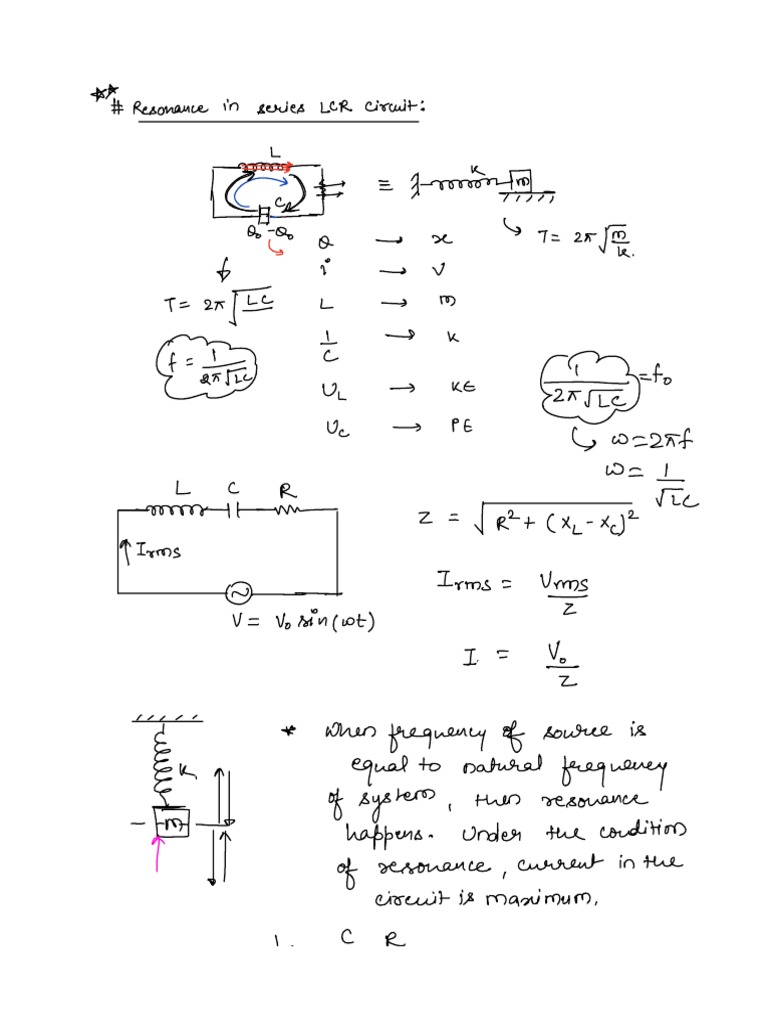 # Resonance in series LCR circuit:
L
C
Q₀ -Q₀
≡
K
m
T = 2π√(m/k).
Q → x
i → v
L → m
1/C → k
U_L → KE
U_C → PE
T = 2π√(LC)
f = 1/(2π√LC)
1/(2π√LC) = f₀
ω = 2πf
ω = 1/√LC
L C R
Irms
V = V₀ sin(ωt)
Z = √(R² + (X_L - X_C)²)
Irms = Vrms/Z
I = V₀/Z
K
m
* When frequency of source is
equal to natural frequency
of system, then resonance
happens. Under the condition
of resonance, current in the
circuit is maximum.
C R